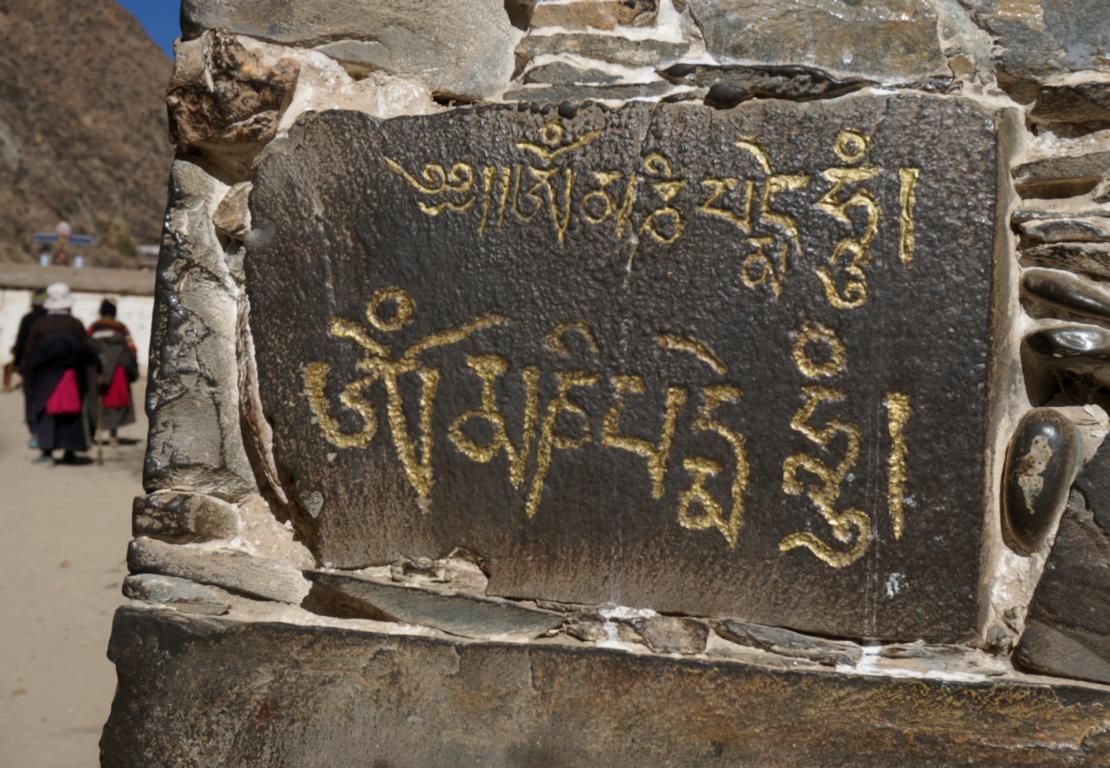 ༄།།ཨོཾམཎིཔདྨེཧཱུཾ།
ཨོཾམཎིཔདྨེཧཱུཾ།